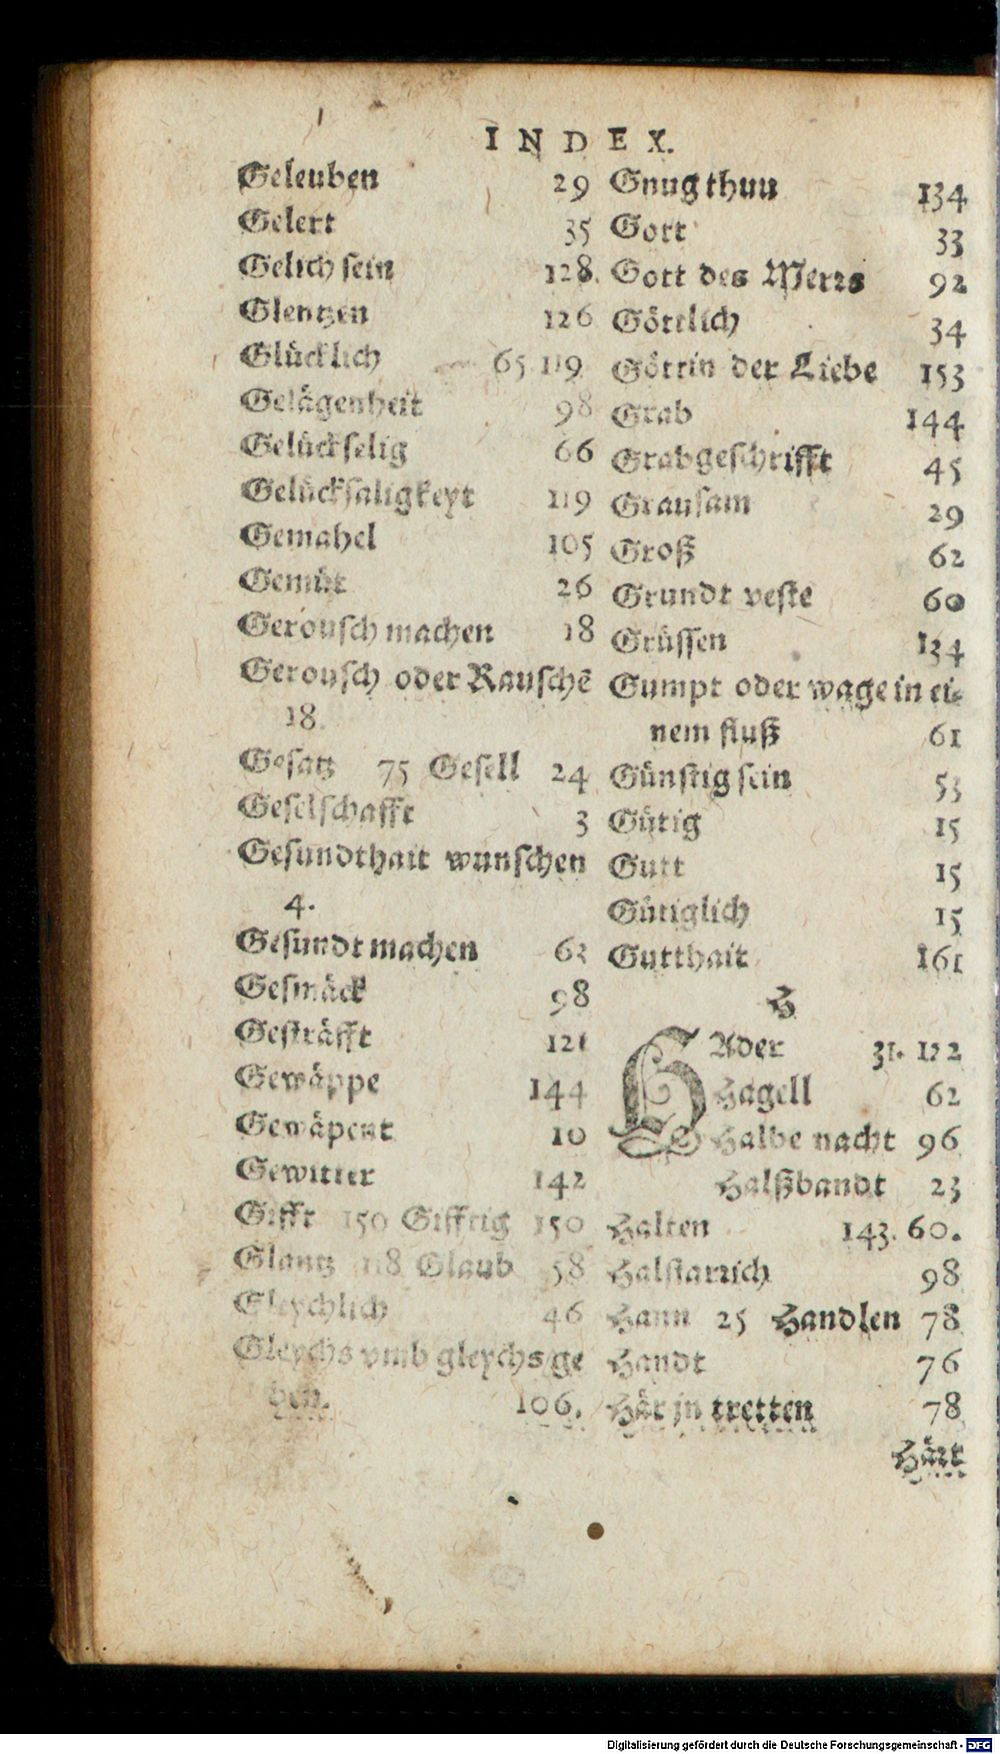 INDEX.
Geleuben 29
Gelert 35
Gelich sein 128.
Glentzen 126
Glücklich 65 119
Gelägenheit 98
Gelückselig 66
Gelücksaligkeyt 119
Gemahel 105
Gemüt 26
Gerousch machen 18
Gerousch oder Rauschē
18.
Gesatz 75 Gesell 24
Geselschafft 3
Gesundthait wunschen
4.
Gesundt machen 62
Gesmäck 98
Gesträfft 121
Gewäppe 144
Gewäpent 10
Gewitter 142
Gifft 150 Gifftig 150
Glantz 118 Glaub 58
Gleychlich 46
Gleychs vmb gleychs/ge
ben. 106.
Gnug thun 134
Gott 33
Gott des Merrs 92
Göttlich 34
Göttin der Liebe 153
Grab 144
Grabgeschrifft 45
Grausam 29
Groß 62
Grundt veste 60
Grüssen 134
Gumpt oder wage in ei-
nem fluß 61
Günstig sein 53
Gütig 15
Gutt 15
Gütiglich 15
Gutthait 161
H
HAder 31. 122
Hagell 62
Halbe nacht 96
Halßbandt 23
Halten 143. 60.
Halstarrich 98
Hann 25 Handlen 78
Handt 76
Här jn tretten 78
Härt
Digitalisierung gefördert durch die Deutsche Forschungsgemeinschaft - DFG